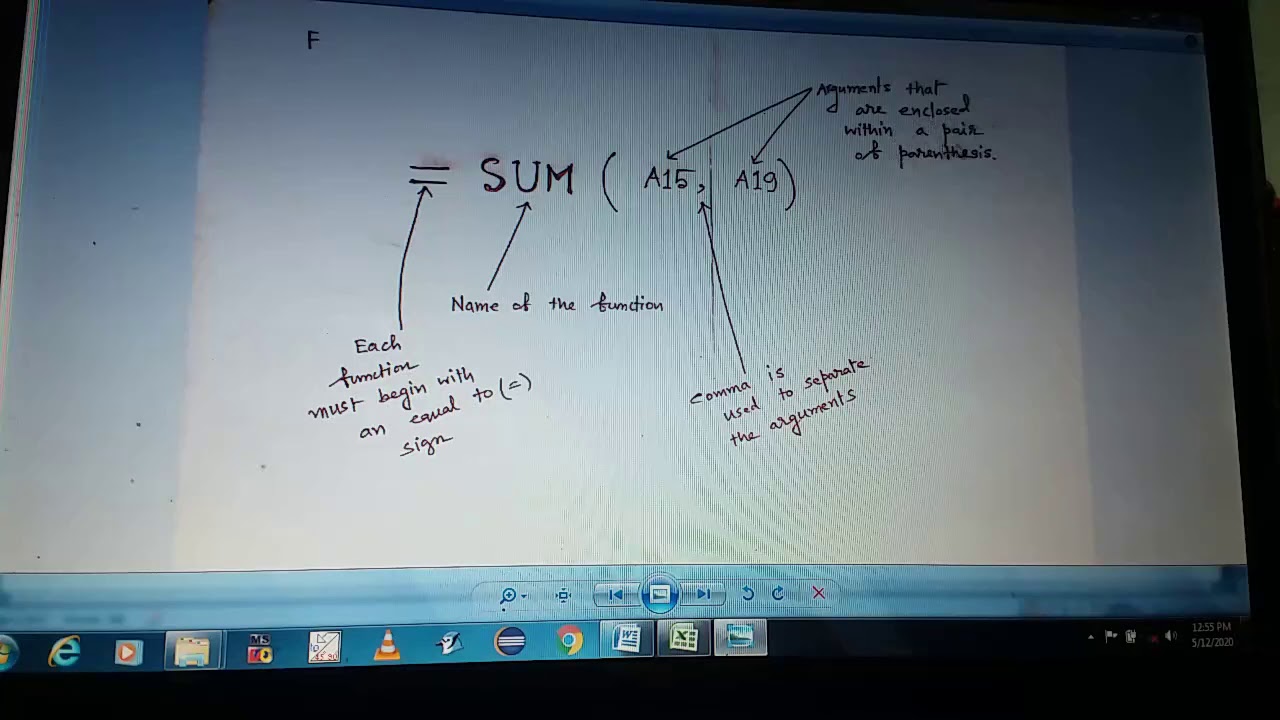 F
Arguments that
are enclosed
within a pair
of parenthesis.
= SUM ( A15, A19)
Name of the function
Each
function
must begin with
an equal to (=)
sign
comma is
used to separate
the arguments
MS
12:55 PM
5/12/2020